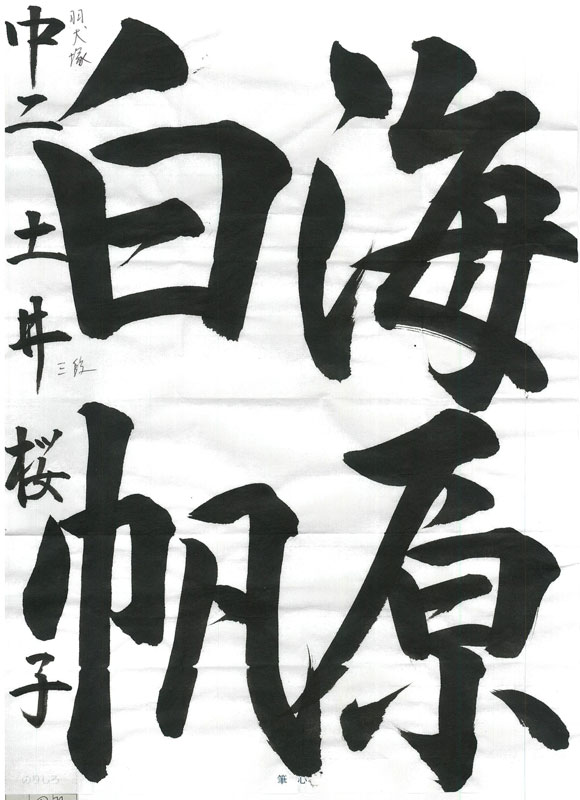 海原
白帆
中二 土井 桜子
羽犬塚
三段
筆心